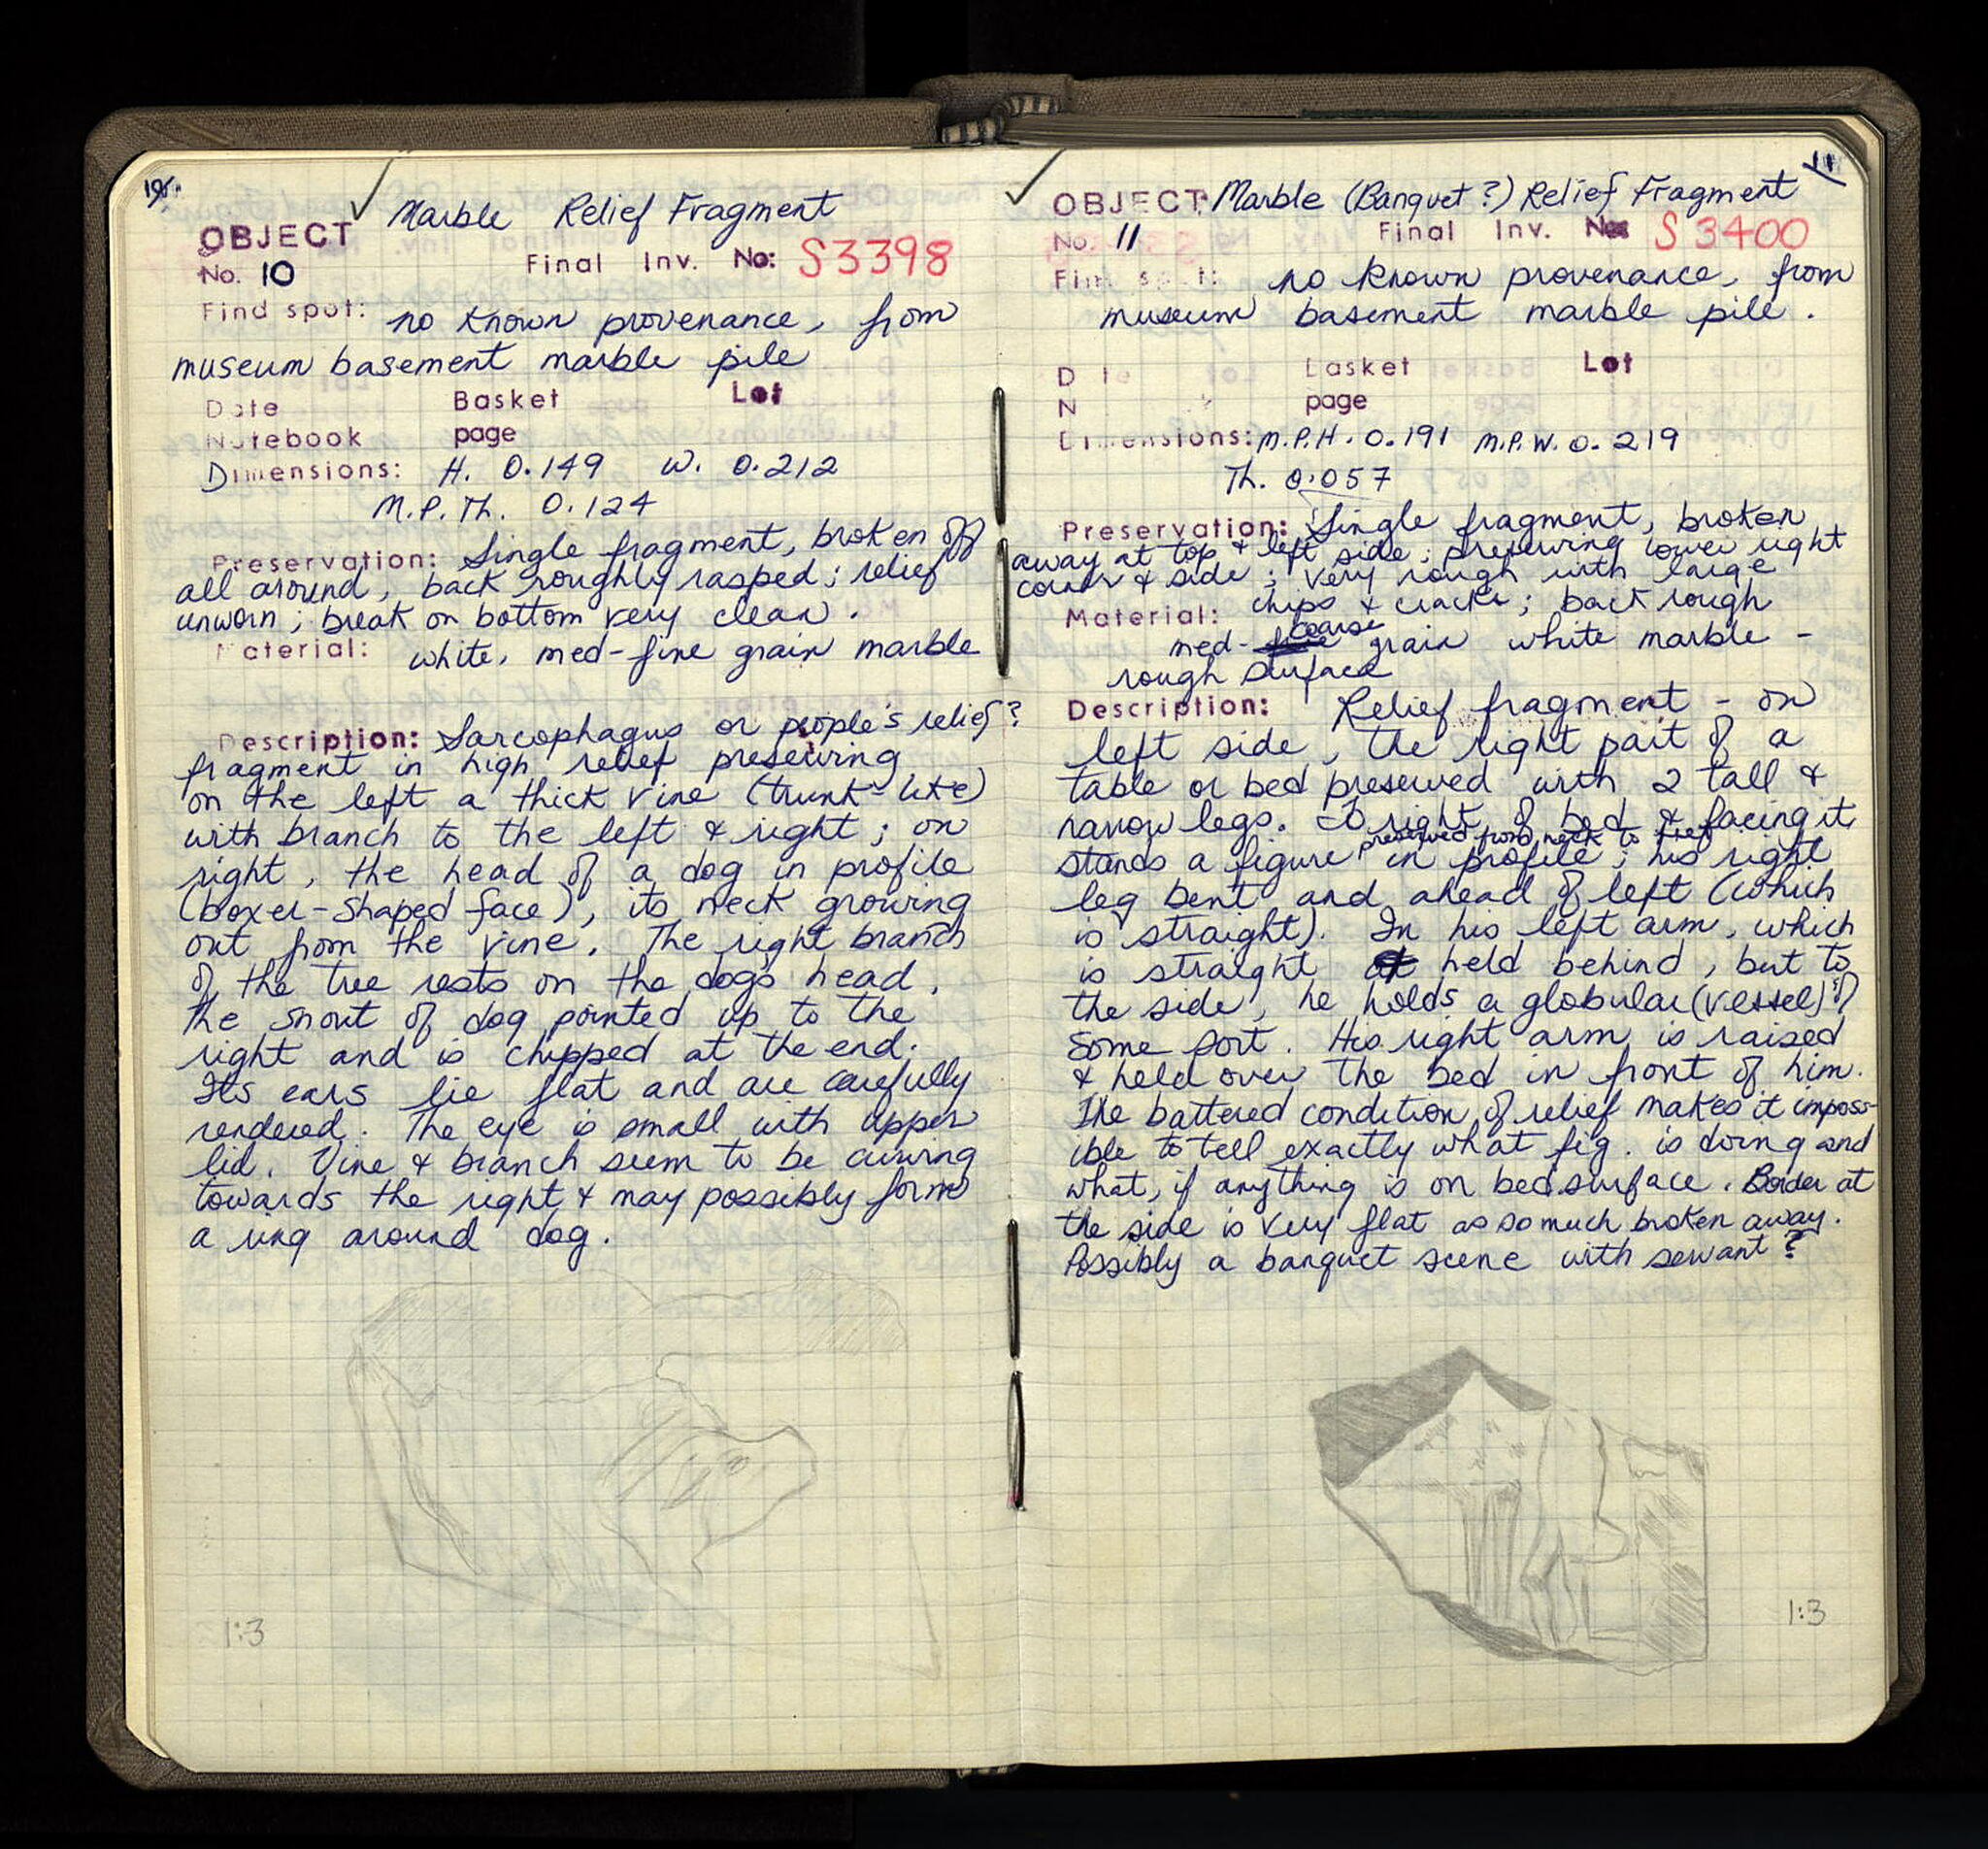 10
Marble Relief Fragment
OBJECT
No. 10 Final Inv. No: S3398
Find spot: no known provenance, from
museum basement marble pile
Date Basket Lot
Notebook page
Dimensions: H. 0.149 W. 0.212
M.P.Th. 0.124
Preservation: Single fragment, broken off
all around, back roughly rasped; relief
unworn; break on bottom very clean.
Material: white, med-fine grain marble
Description: Sarcophagus or people's relief?
fragment in high relief preserving
on the left a thick vine (trunk-like)
with branch to the left & right; on
right, the head of a dog in profile
(boxer-shaped face), its neck growing
out from the vine. The right branch
of the tree rests on the dog's head.
The snout of dog pointed up to the
right and is chipped at the end.
Its ears lie flat and are carefully
rendered. The eye is small with upper
lid. Vine & branch seem to be curving
towards the right & may possibly form
a ring around dog.
1:3
11
OBJECT: Marble (Banquet?) Relief Fragment
No. 11 Final Inv. No: S 3400
Find spot: no known provenance, from
museum basement marble pile.
Date Basket Lot
N page
Dimensions: M.P.H. 0.191 M.P.W. 0.219
Th. 0.057
Preservation: Single fragment, broken
away at top & left side; preserving lower right
corner & side; very rough with large
chips & cracks; back rough
Material: med-coarse grain white marble -
rough surface
Description: Relief fragment - on
left side, the right part of a
table or bed preserved with 2 tall &
narrow legs. To right of bed & facing it
stands a figure preserved from neck to feet in profile; his right
leg bent and ahead of left (which
is straight). In his left arm, which
is straight held behind, but to
the side, he holds a globular (vessel) of
some sort. His right arm is raised
& held over the bed in front of him.
The battered condition of relief makes it imposs-
ible to tell exactly what fig. is doing and
what, if anything is on bed surface. Border at
the side is very flat as so much broken away.
Possibly a banquet scene with servant?
1:3